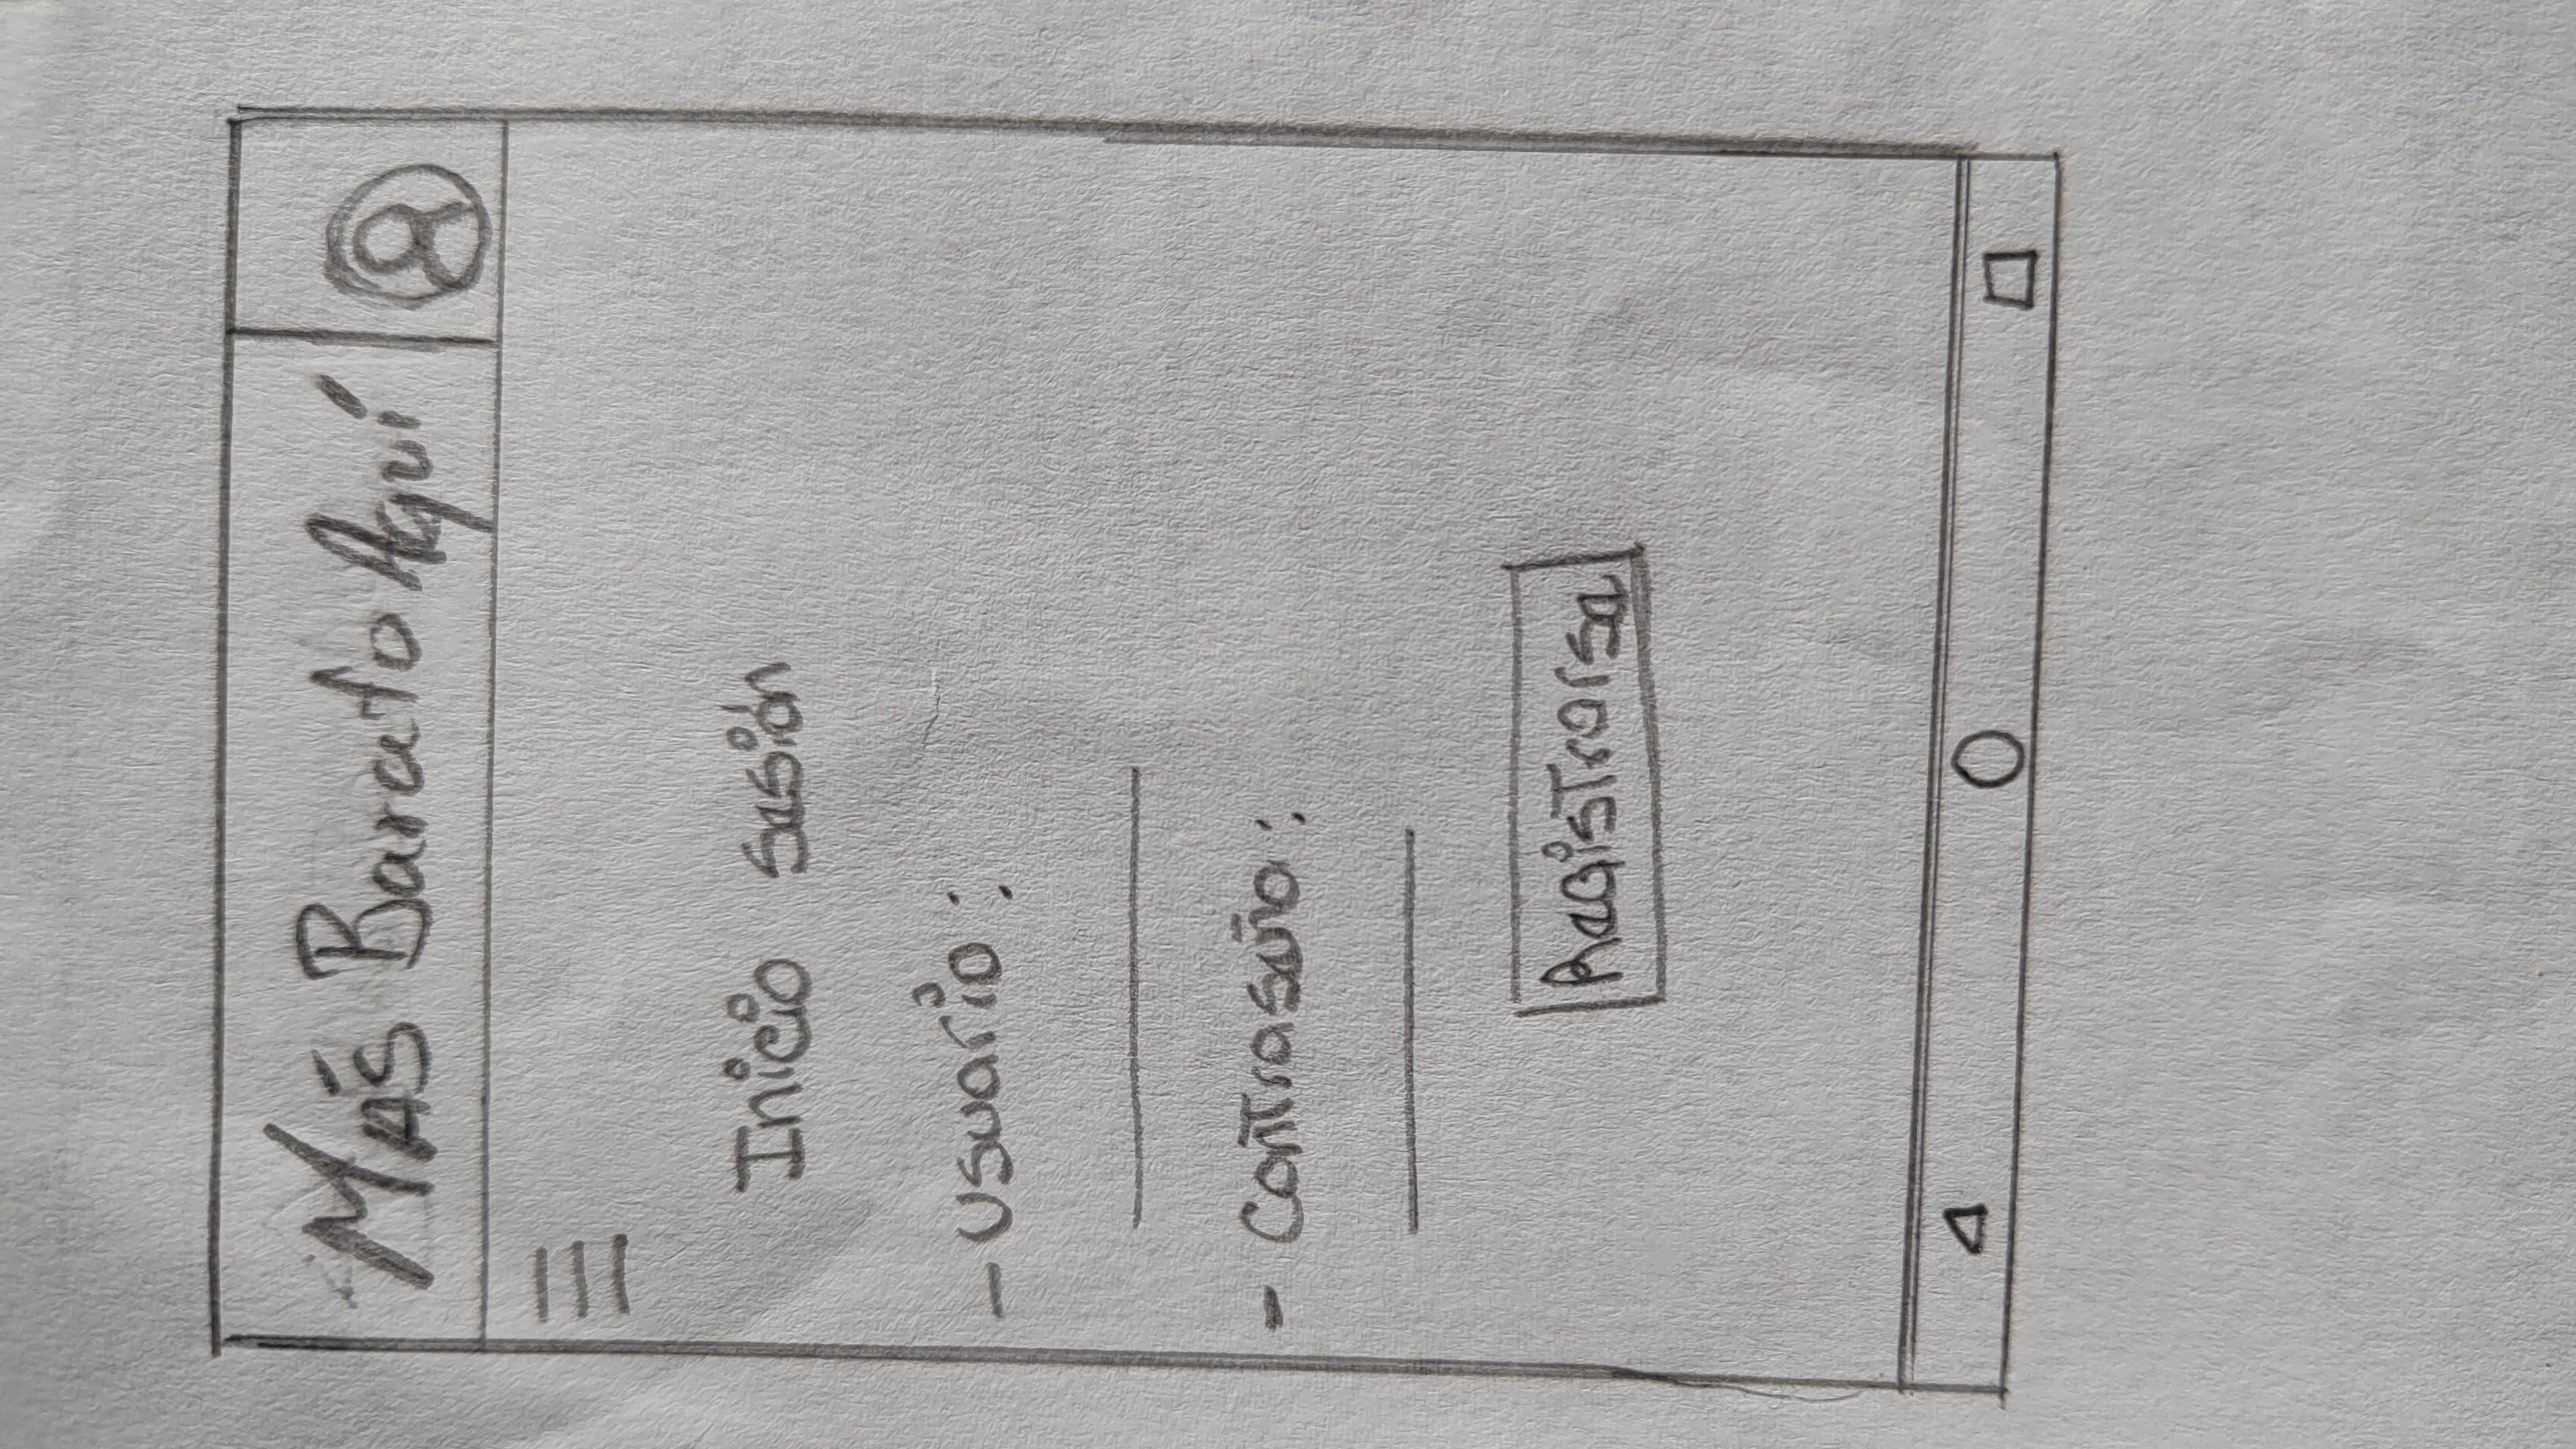 Más Barato Aquí
Inicio sesión
- Usuario:
- Contraseña:
Registrarse